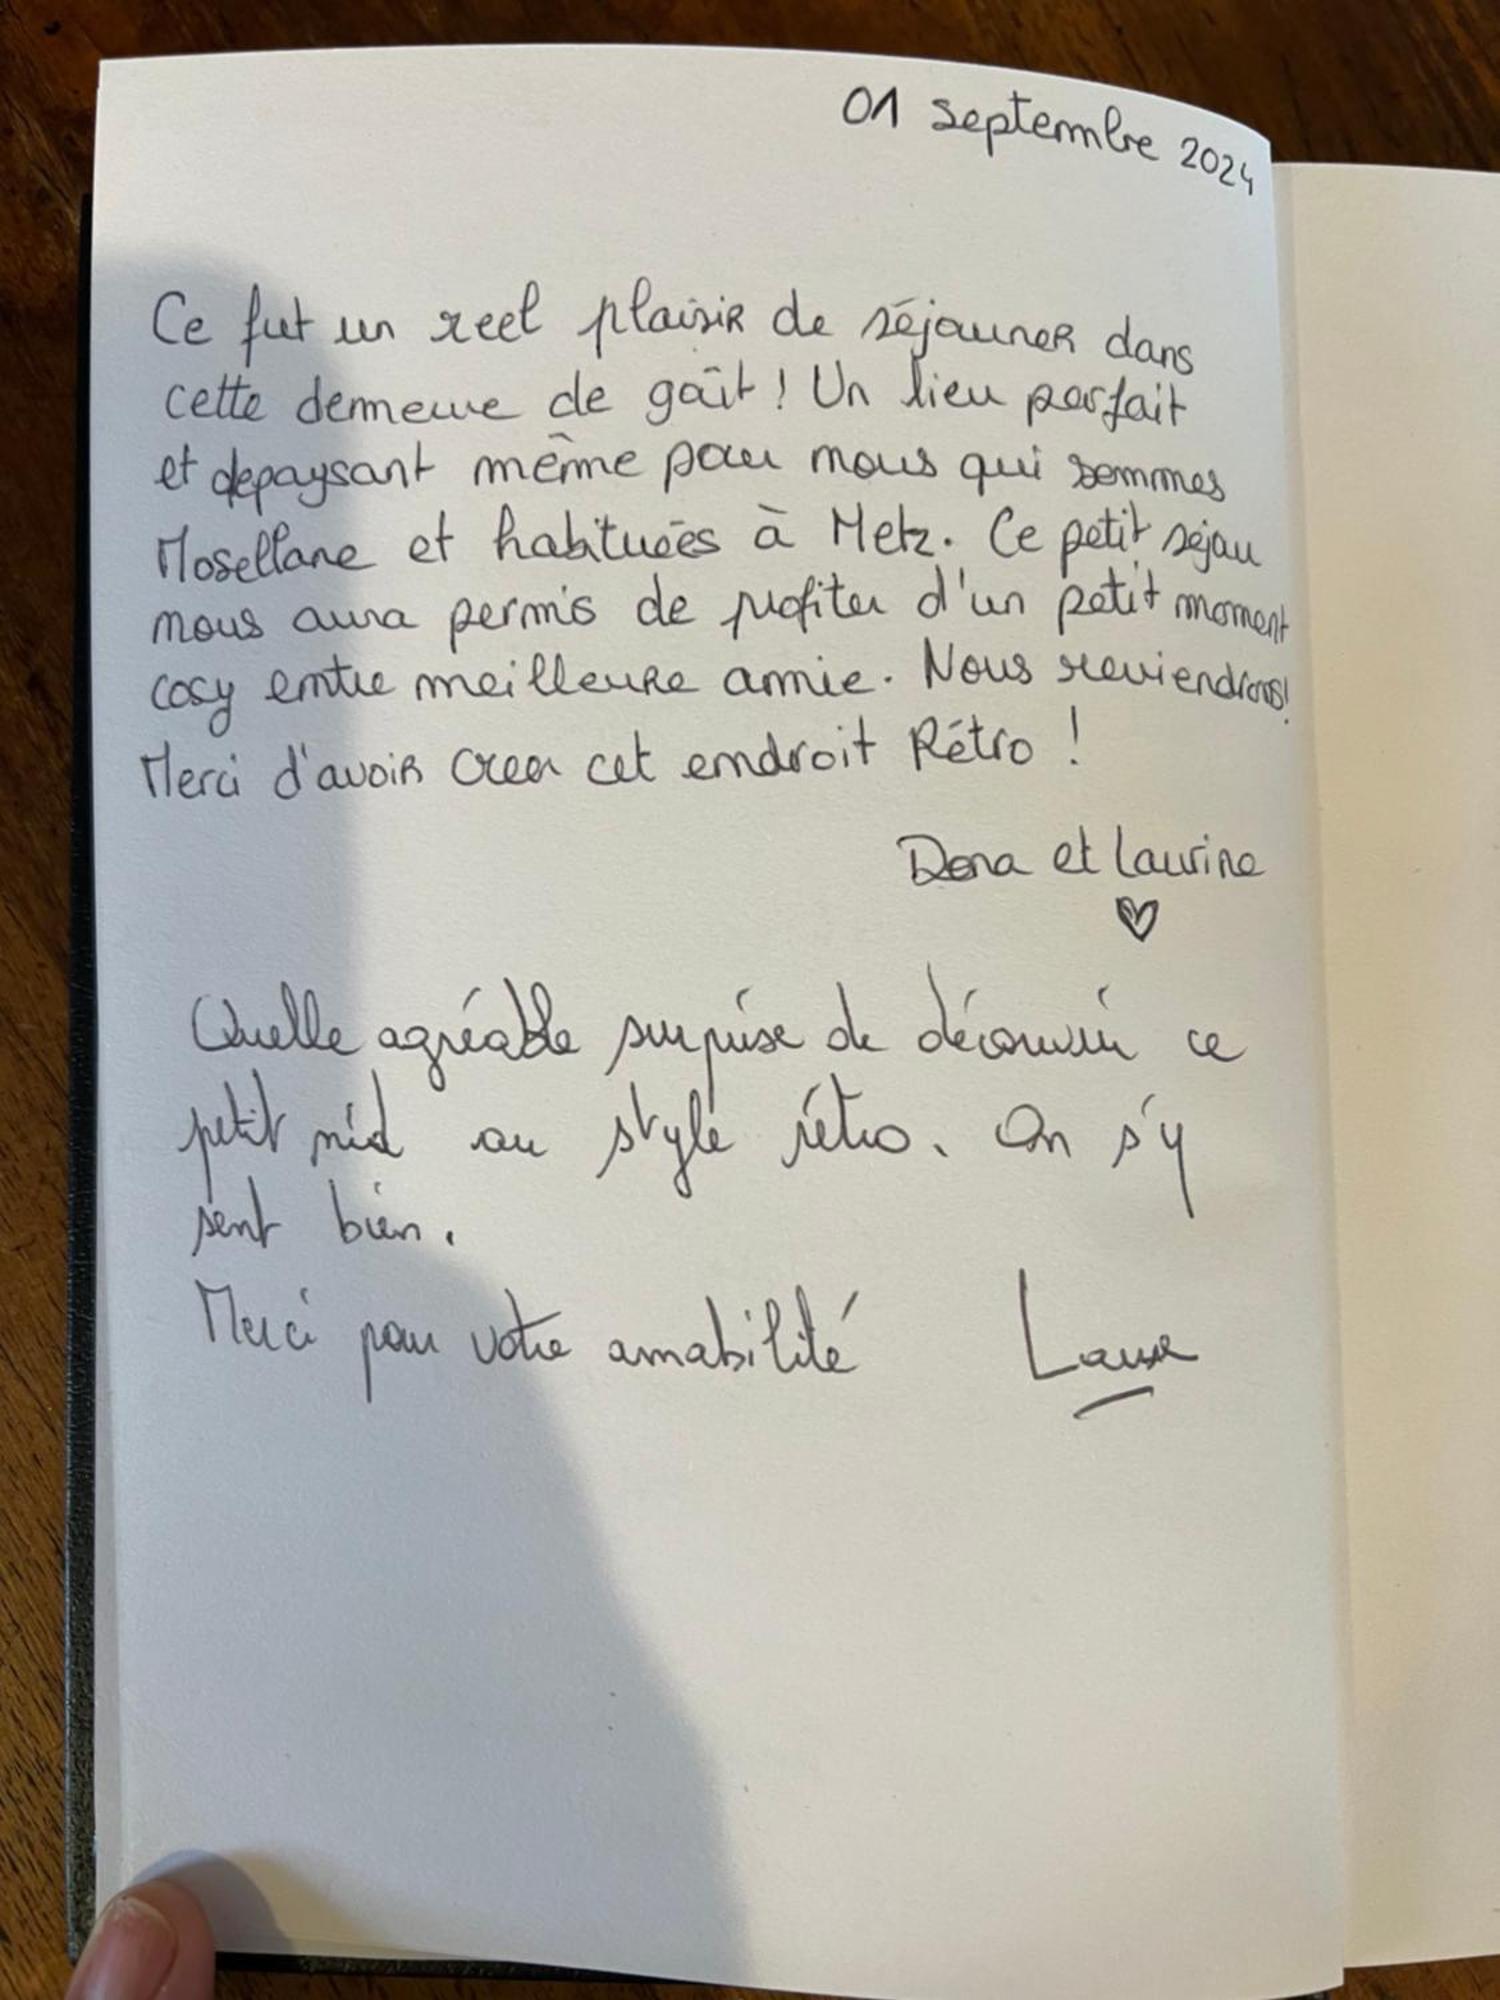 01 septembre 2024
Ce fut un reel plaisir de séjourner dans
cette demeure de goût ! Un lieu parfait
et depaysant même pour nous qui sommes
Mosellane et habituées à Metz. Ce petit séjour
nous aura permis de profiter d'un petit moment
cosy entre meilleure amie. Nous reviendrons!
Merci d'avoir creer cet endroit Rétro !
Dona et Laurine
♡
Quelle agréable surprise de découvrir ce
petit nid au style rétro. On s'y
sent bien.
Merci pour votre amabilité Laure